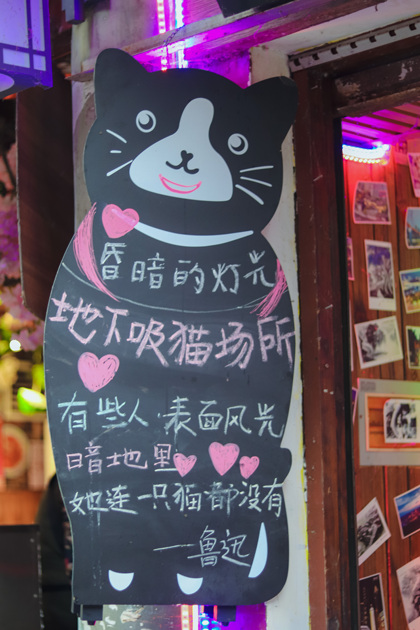 昏暗的灯光
地下吸猫场所
有些人 表面风光
暗地里
她连一只猫都没有
——鲁迅